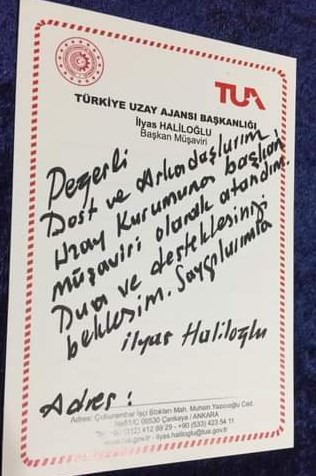 TUA
TÜRKİYE UZAY AJANSI BAŞKANLIĞI
İlyas HALİLOĞLU
Başkan Müşaviri
Değerli
Dost ve Arkadaşlarım
Uzay Kurumuna başkan
müşaviri olarak atandım.
Dua ve desteklesinizi
beklesim. Saygılarımla
ilyas Haliloğlu
Adres:
Adres: Çukurambar İşçi Blokları Mah. Muhsin Yazıcıoğlu Cad.
06530 Çankaya / ANKARA
412 99 29 - +90 (533) 423 54 11
www.tua.gov.tr - ilyas.haliloglu@tua.gov.tr